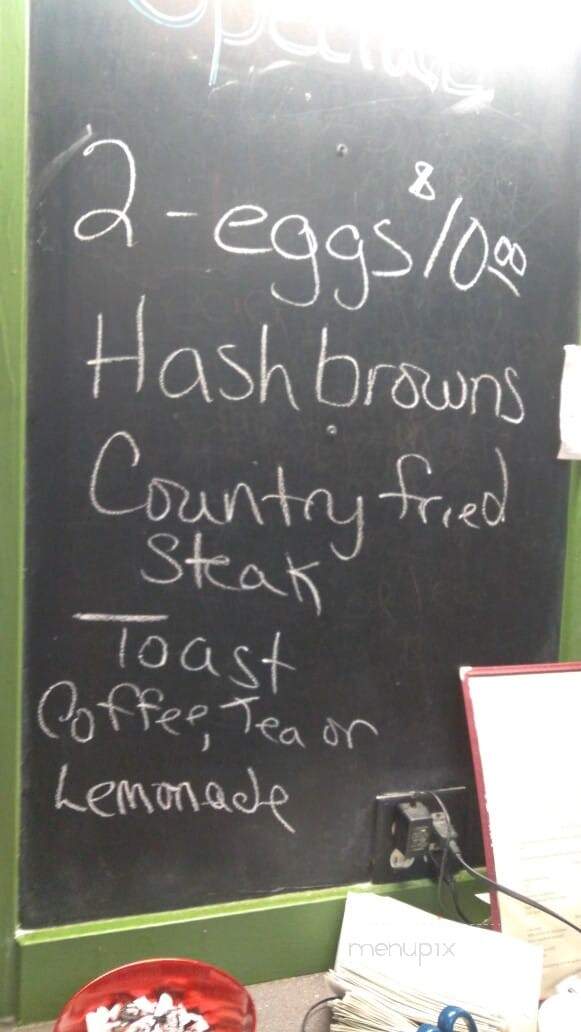 2-eggs $10.00
Hash browns
Country fried
Steak
Toast
Coffee, Tea or
Lemonade
menupix